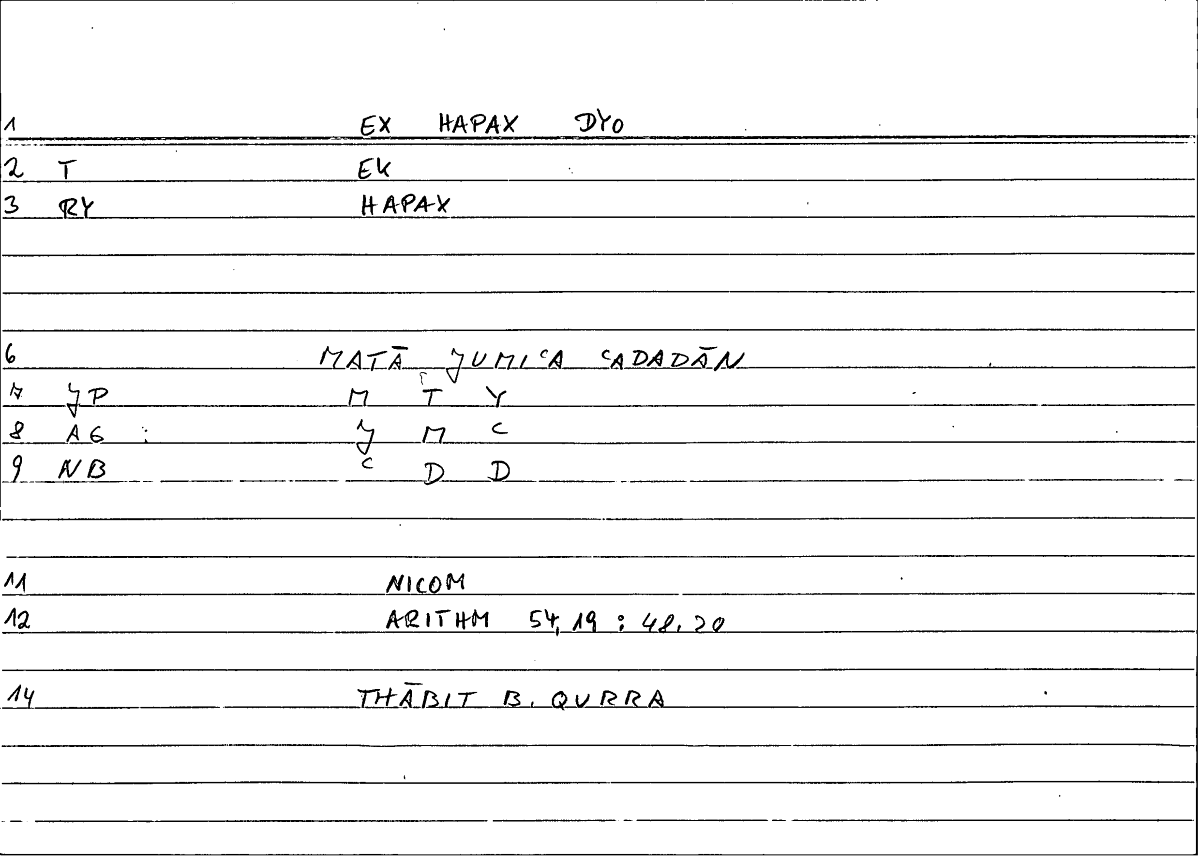 1 EX HAPAX DYO
2 T EK
3 RY HAPAX
6 MATĀ JUMIʿA ʿADADĀN
7 JP M T Y
8 AG : J M ʿ
9 NB ʿ D D
11 NICOM
12 ARITHM 54,19 : 48.20
14 THĀBIT B. QURRA